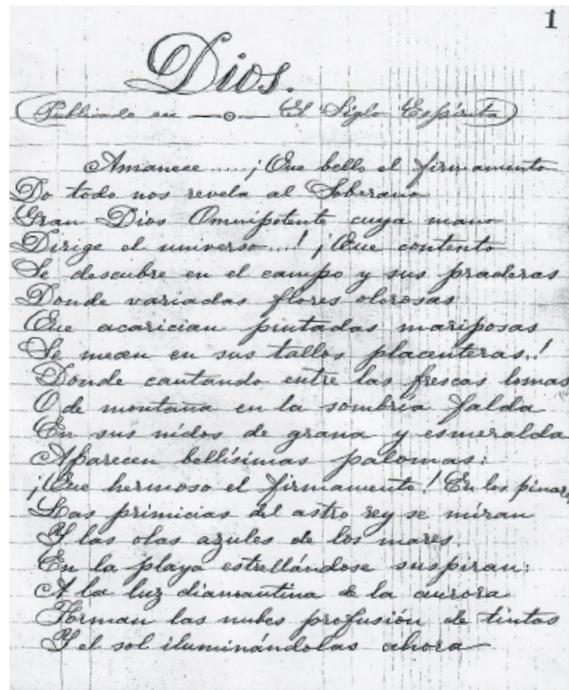 1
Dios.
(Publicado en —o— El Siglo Espírita)
Amanece.....¡Que bello el firmamento
Do todo nos revela al Soberano
Gran Dios Omnipotente cuya mano
Dirige el universo...! ¡Que contento
Se descubre en el campo y sus praderas
Donde variadas flores olorosas
Que acarician pintadas mariposas
Se mecen en sus tallos placenteras.!
Donde cantando entre las frescas lomas
O de montaña en la sombría falda
En sus nidos de grana y esmeralda
Aparecen bellísimas palomas:
¡Que hermoso el firmamento! En los pinares
Las primicias del astro rey se miran
Y las olas azules de los mares
En la playa estrellándose suspiran:
A la luz diamantina de la aurora
Forman las nubes profusión de tintas
Y el sol iluminándolas ahora